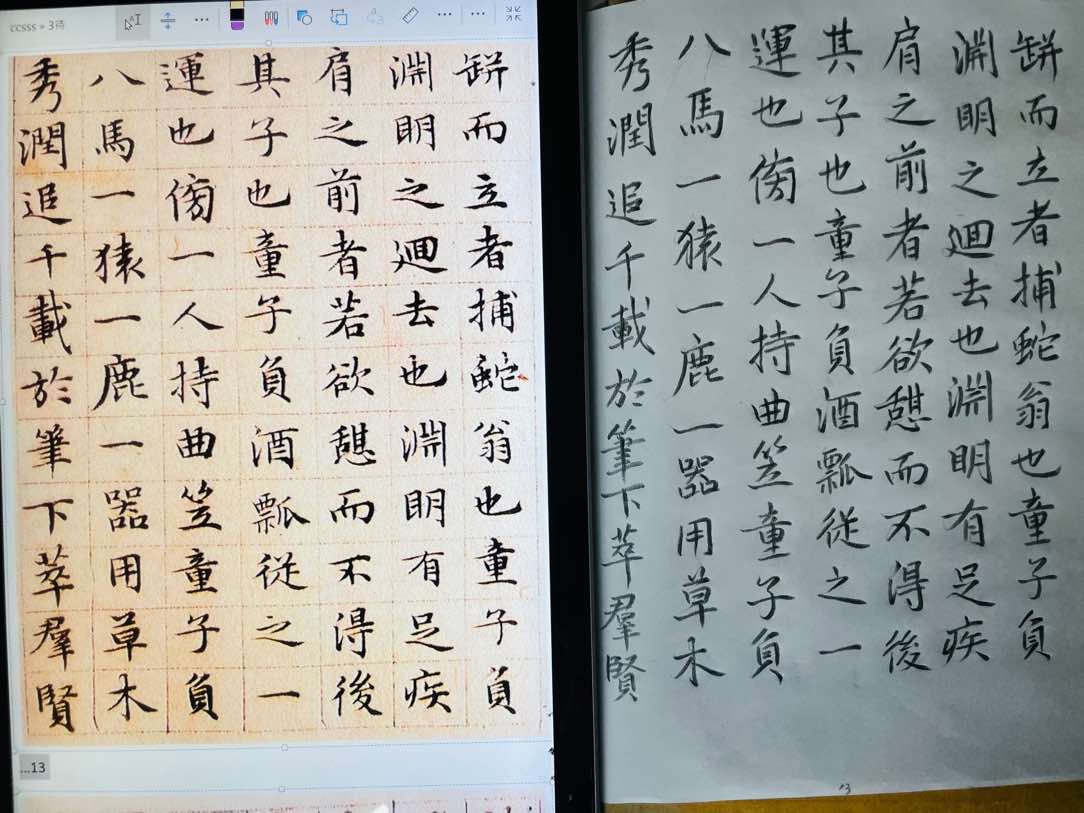 ccsss » 3待
缾而立者捕蛇翁也童子負
淵明之迴去也淵明有足疾
肩之前者若欲憇而不得後
其子也童子負酒瓢従之一
運也傍一人持曲笠童子負
八馬一猿一鹿一器用草木
秀潤追千載於筆下萃羣賢
...13
缾而立者捕蛇翁也童子負
淵明之迴去也淵明有足疾
肩之前者若欲憇而不得後
其子也童子負酒瓢従之一
運也傍一人持曲笠童子負
八馬一猿一鹿一器用草木
秀潤追千載於筆下萃羣賢
13